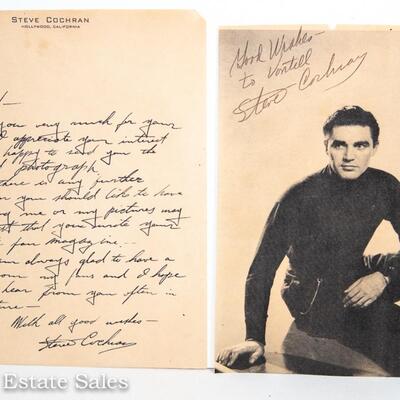 STEVE COCHRAN
HOLLYWOOD, CALIFORNIA
you very much for your
appreciate your interest
happy to send you the
photograph
there is any further
you should like to have
me or my pictures may
that you write your
fan magazine...
always glad to have a
from my fans and I hope
hear from you often in
With all good wishes—
Steve Cochran
Good Wishes—
to Vontell
Steve Cochran
Estate Sales